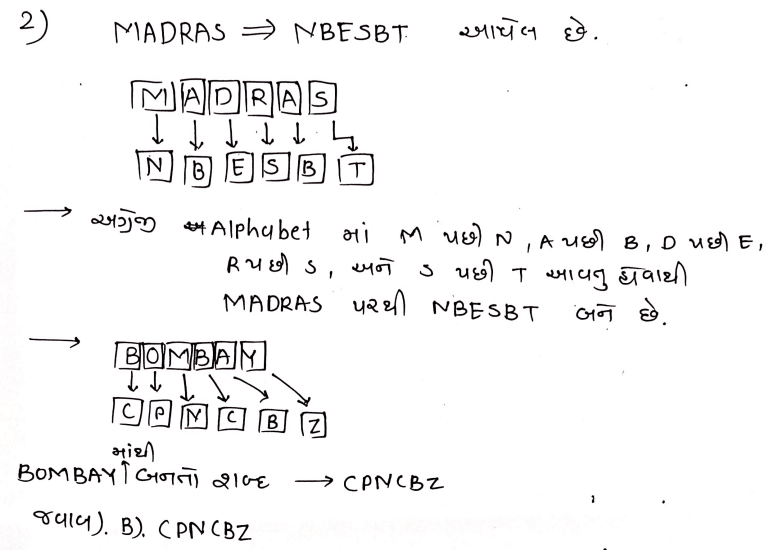 2) MADRAS ⇒ NBESBT આપેલ છે.
M A D R A S
N B E S B T
→ અંગ્રેજી Alphabet માં M પછી N, A પછી B, D પછી E,
R પછી S, અને S પછી T આવતુ હોવાથી
MADRAS પરથી NBESBT બને છે.
→ B O M B A Y
C P N C B Z
માંથી
BOMBAY↑ બનતો શબ્દ → CPNCBZ
જવાબ). B). CPNCBZ